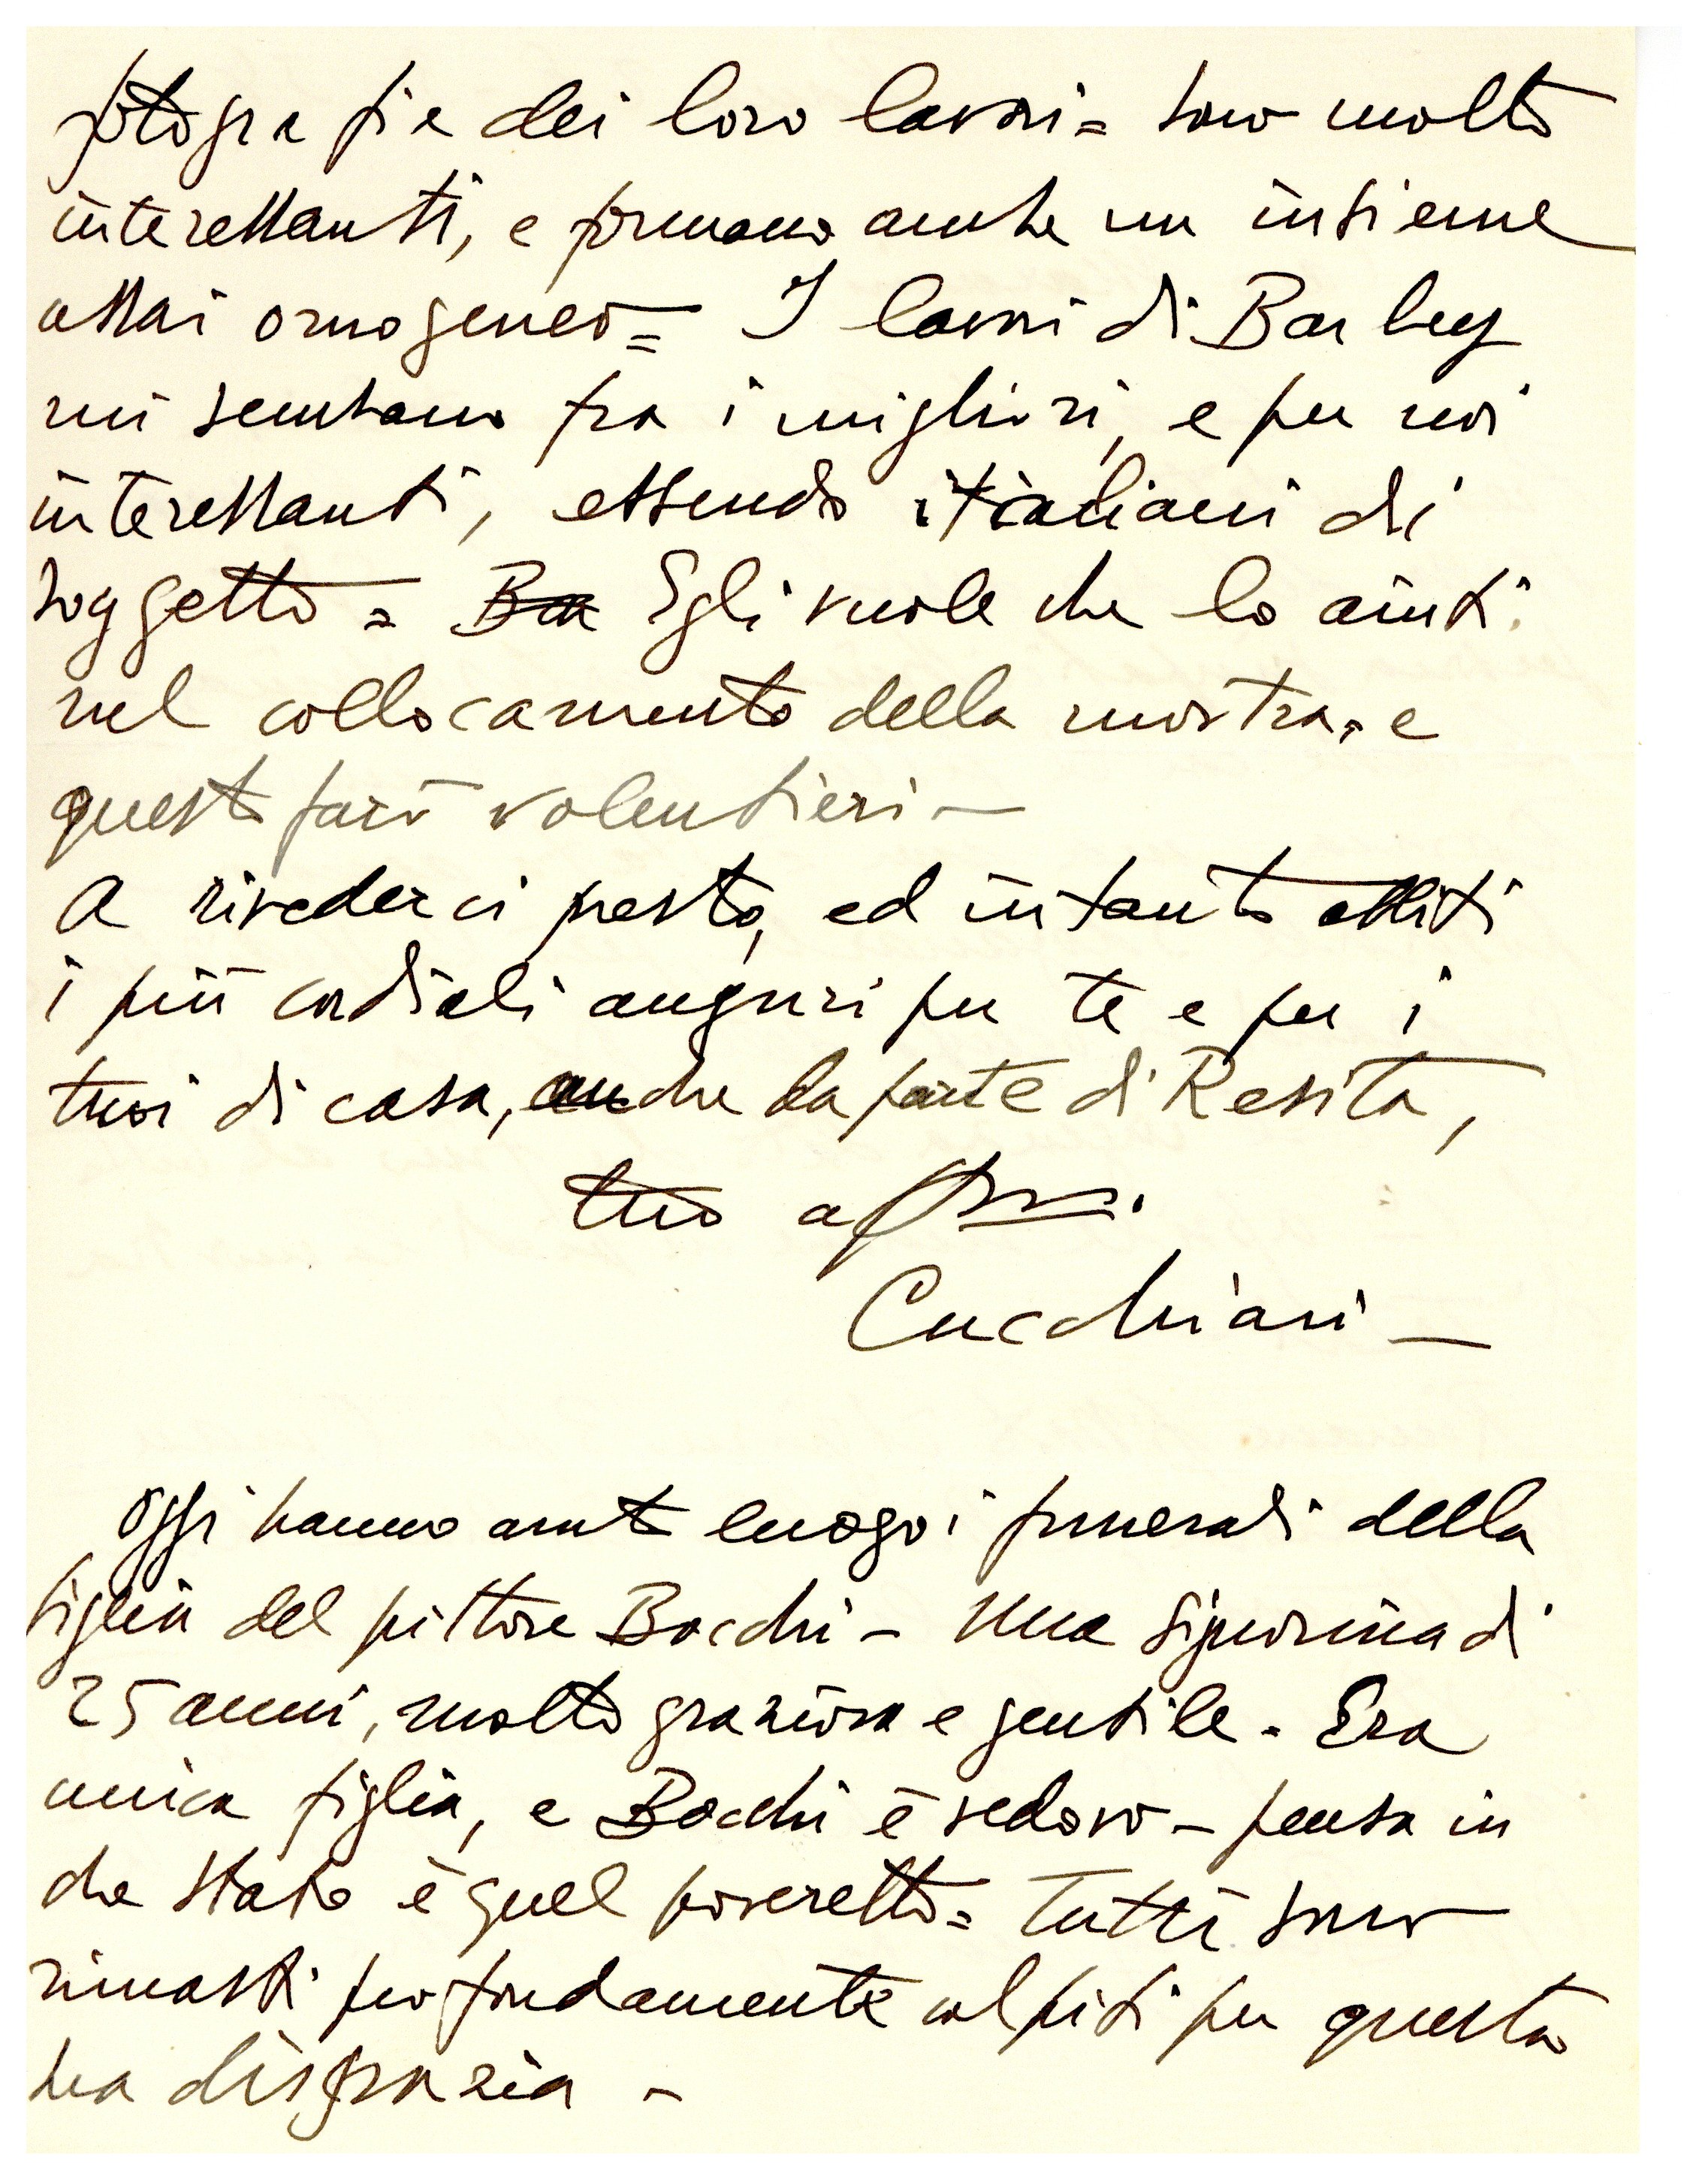 fotografie dei loro lavori = sono molto
interessanti, e formano anche un insieme
assai omogeneo = I lavori di Barbey
mi sembrano fra i migliori, e per noi
interessanti, essendo italiani di
soggetto = Ba Egli vuole che lo aiuti
nel collocamento della mostra, e
questo farò volentieri —
A rivederci presto, ed intanto abbiti
i più cordiali auguri per te e per i
tuoi di casa, anche da parte di Resita,
tuo aff.mo
Cucchiari —
Oggi hanno avuto luogo i funerali della
figlia del pittore Bocchi — Una signorina di
25 anni, molto graziosa e gentile. Era
unica figlia, e Bocchi è vedovo — pensa in
che stato è quel poveretto = Tutti sono
rimasti profondamente colpiti per questa
sua disgrazia —